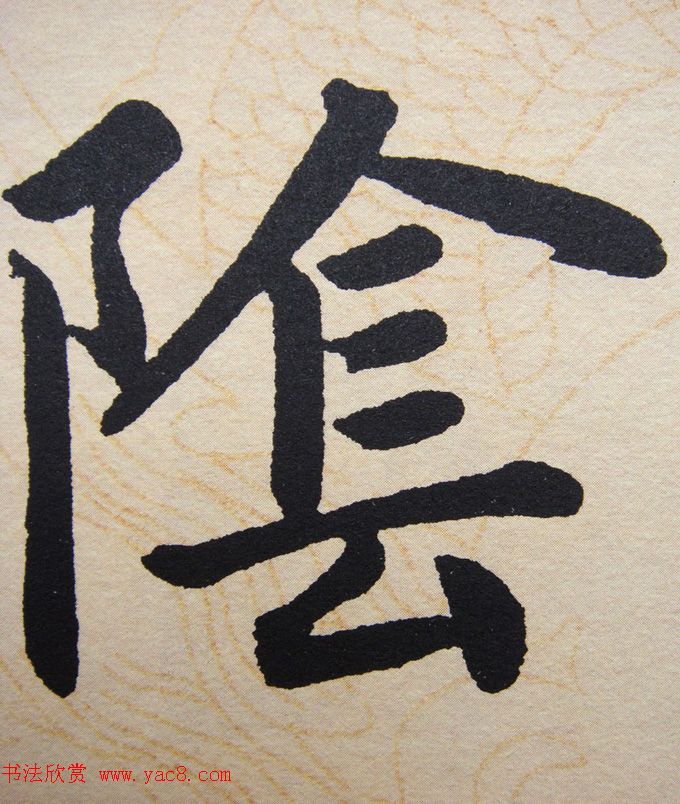 隂
书法欣赏 www.yac8.com